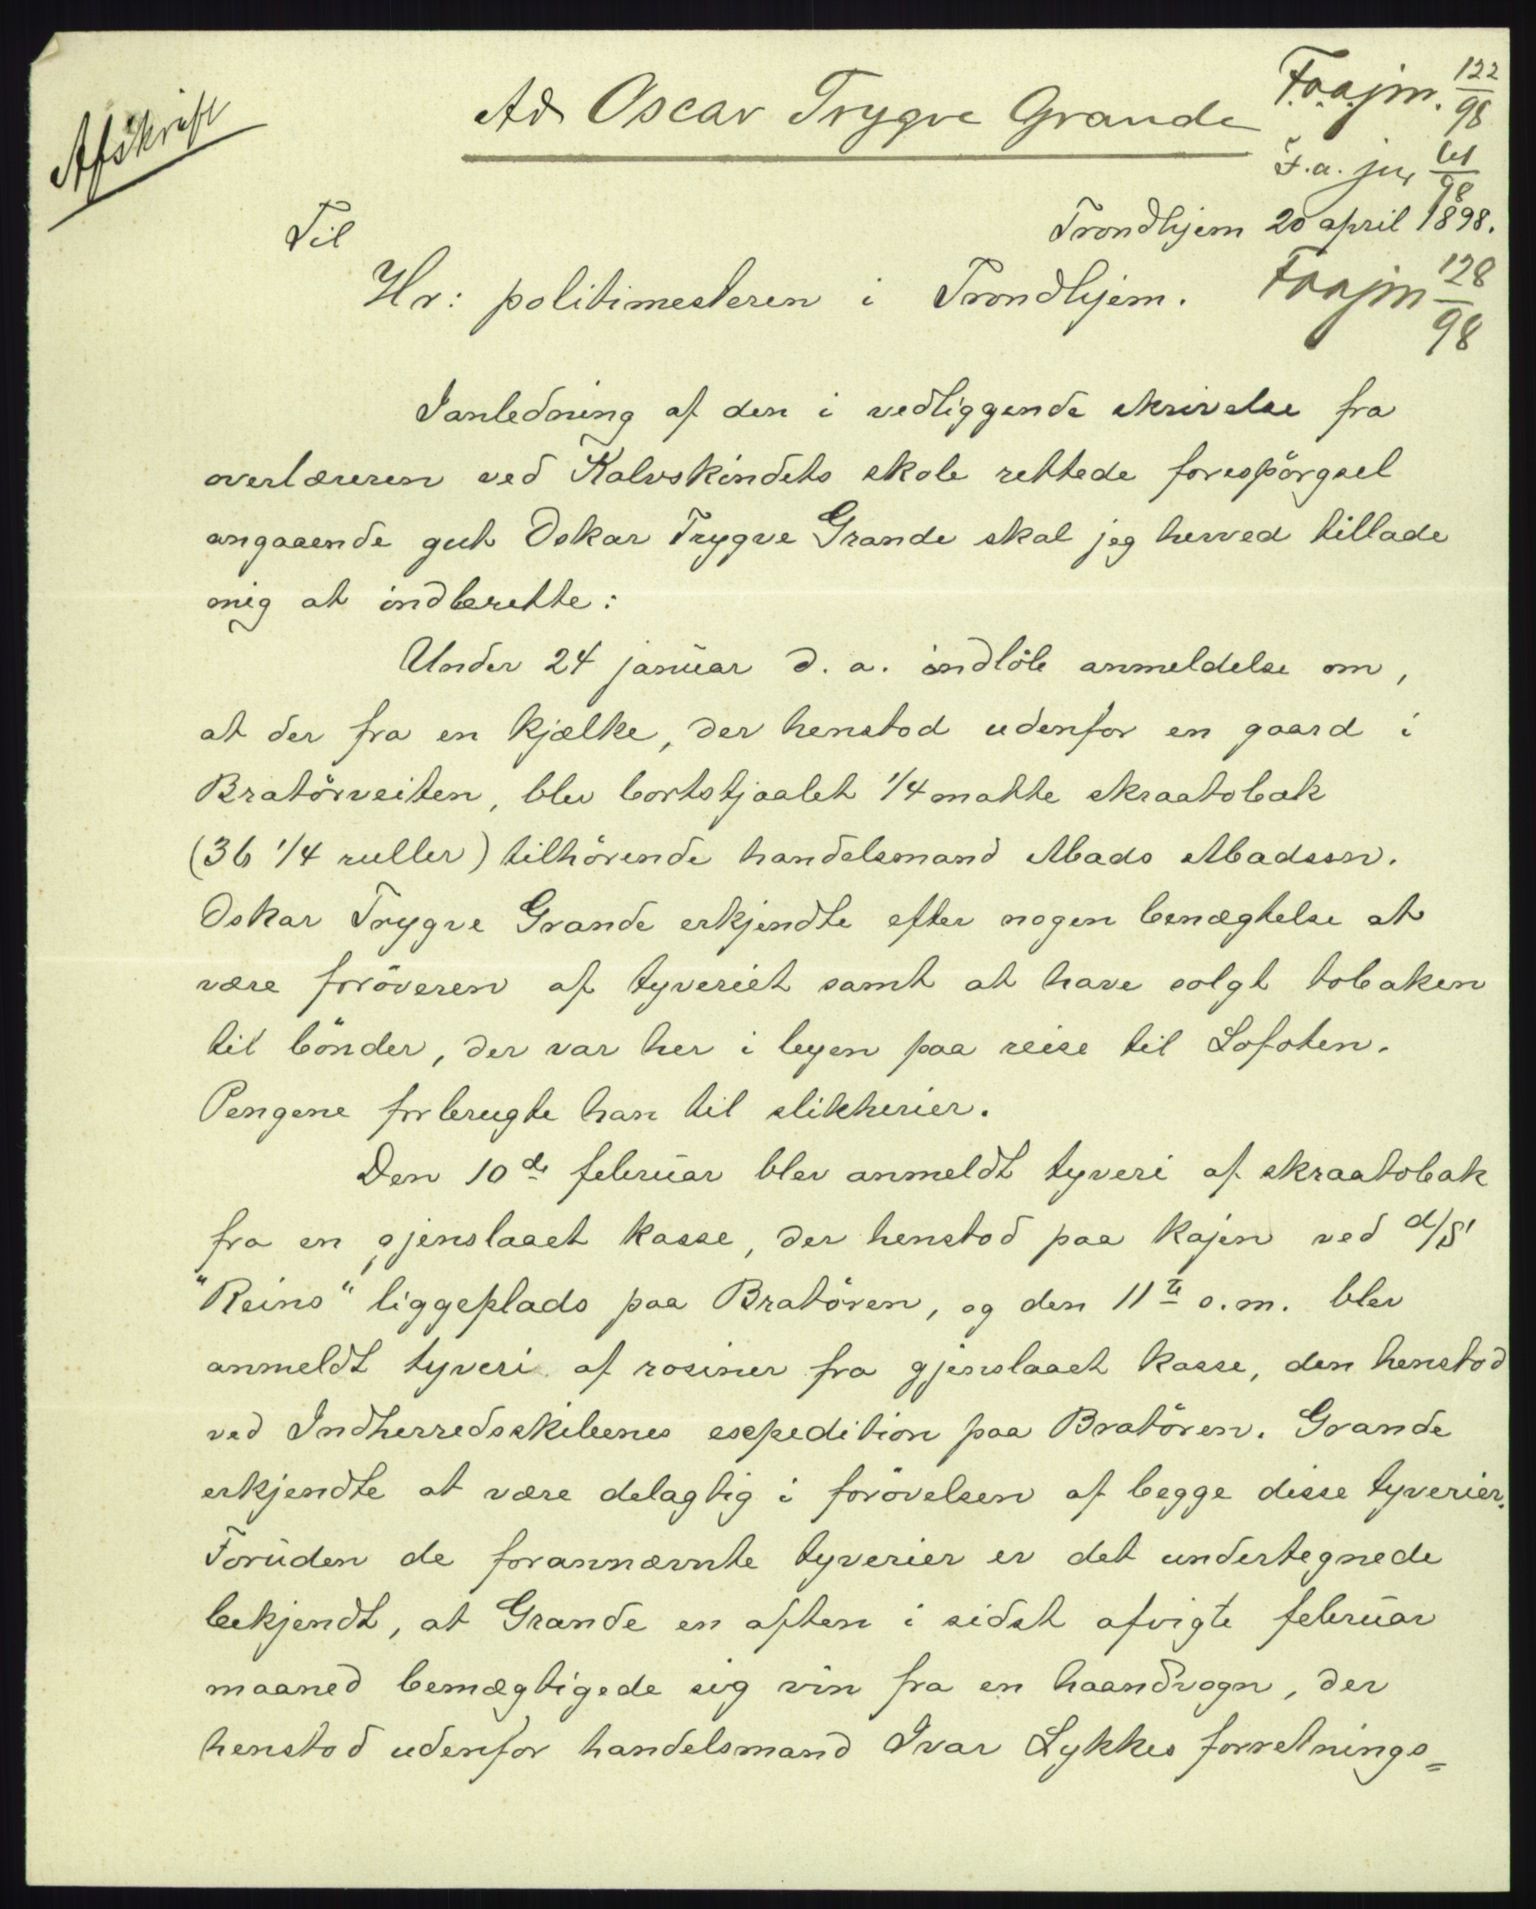 Afskrift
Ad Oscar Trygve Grande
F.a.a.jm. 122/98
F.a. jm 61/98
Trondhjem 20 april 1898.
Til
Hr: politimesteren i Trondhjem.
Faajm 128/98
Ianledning af den i vedliggende skrivelse fra
overlæreren ved Kalvskindets skole rettede forespörgsel
angaaende gut Oskar Trygve Grande skal jeg herved tillade
mig at indberette:
Under 24 januar d. a. indlöb anmeldelse om,
at der fra en kjælke, der henstod udenfor en gaard i
Bratörveiten, blev bortstjaalet 1/4 matte skraatobak
(36 1/4 ruller) tilhörende handelsmand Mads Madsen.
Oskar Trygve Grande erkjendte efter nogen benægtelse at
være foröveren af tyveriet samt at have solgt tobaken
til bönder, der var her i byen paa reise til Lofoten.
Pengene forbrugte han til slikkerier.
Den 10de februar blev anmeldt tyveri af skraatobak
fra en gjenslaaet kasse, der henstod paa kajen ved d/S
"Reins" liggeplads paa Bratören, og den 11te s.m. blev
anmeldt tyveri af rosiner fra gjenslaaet kasse, den henstod
ved Indherredsskibenes expedition paa Bratören. Grande
erkjendte at være delagtig i forövelsen af begge disse tyverier.
Foruden de forannævnte tyverier er det undertegnede
bekjendt, at Grande en aften i sidst afvigte februar
maaned bemægtigede sig vin fra en haandvogn, der
henstod udenfor handelsmand Ivar Lykkes forretnings=